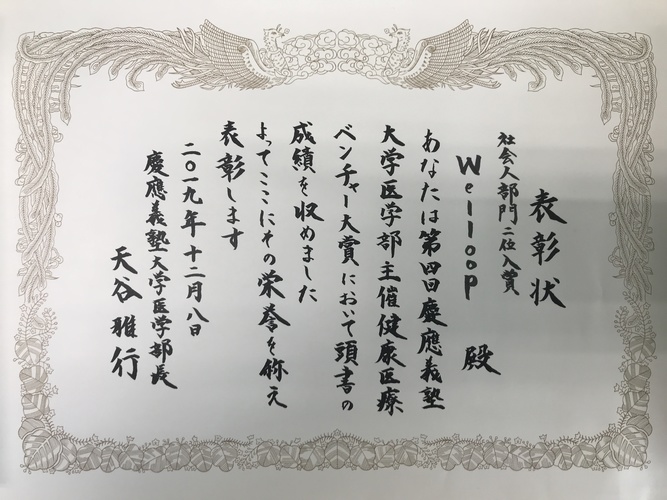 表彰状
社会人部門二位入賞
Welloop 殿
あなたは第四回慶應義塾
大学医学部主催健康医療
ベンチャー大賞において頭書の
成績を収めました
よってここにその栄誉を称え
表彰します
二〇一九年十二月八日
慶應義塾大学医学部長
天谷雅行